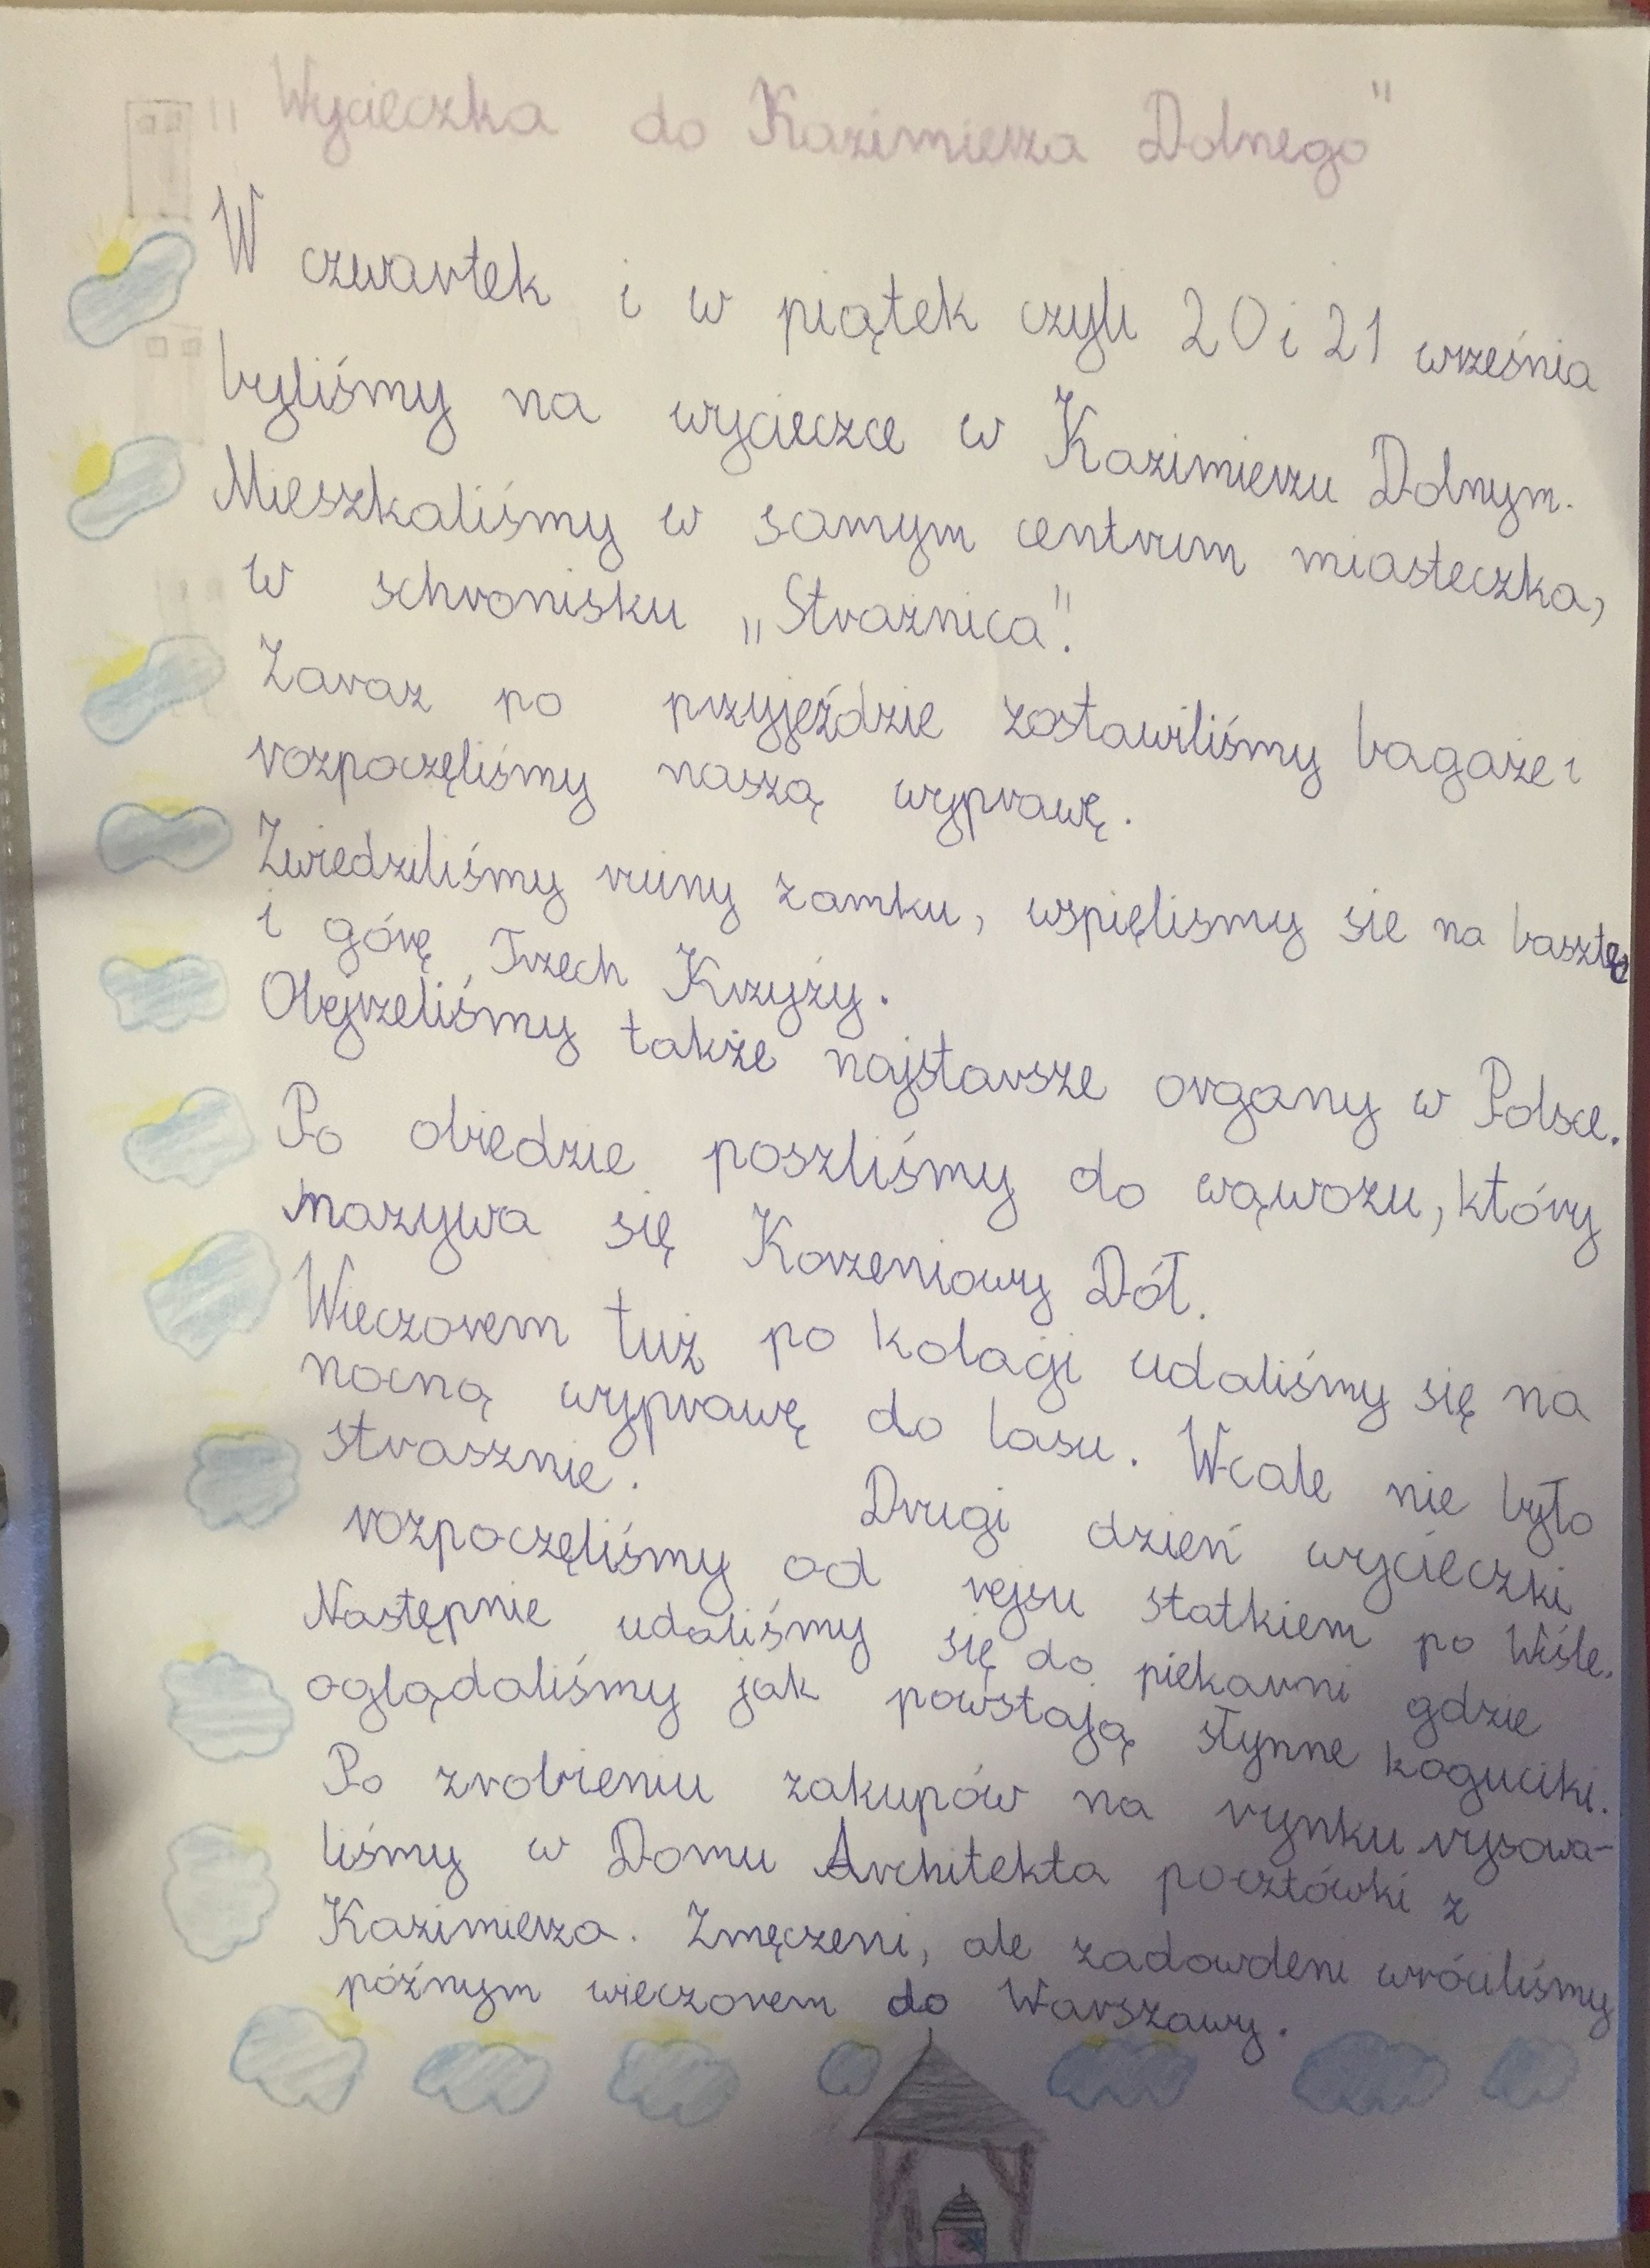 "Wycieczka do Kazimierza Dolnego"
W czwartek i w piątek czyli 20 i 21 września
byliśmy na wycieczce w Kazimierzu Dolnym.
Mieszkaliśmy w samym centrum miasteczka,
w schronisku „Strażnica".
Zaraz po przyjeździe zostawiliśmy bagaże i
rozpoczęliśmy naszą wyprawę.
Zwiedziliśmy ruiny zamku, wspięlismy się na basztę
i górę Trzech Krzyży.
Obejrzeliśmy także najstarsze organy w Polsce.
Po obiedzie poszliśmy do wąwozu, który
nazywa się Korzeniowy Dół.
Wieczorem tuż po kolacji udaliśmy się na
nocną wyprawę do lasu. Wcale nie było
strasznie. Drugi dzień wycieczki
rozpoczęliśmy od rejsu statkiem po Wiśle.
Następnie udaliśmy się do piekarni gdzie
oglądaliśmy jak powstają słynne koguciki.
Po zrobieniu zakupów na rynku rysowa-
liśmy w Domu Architekta pocztówki z
Kazimierza. Zmęczeni, ale zadowoleni wróciliśmy
późnym wieczorem do Warszawy.